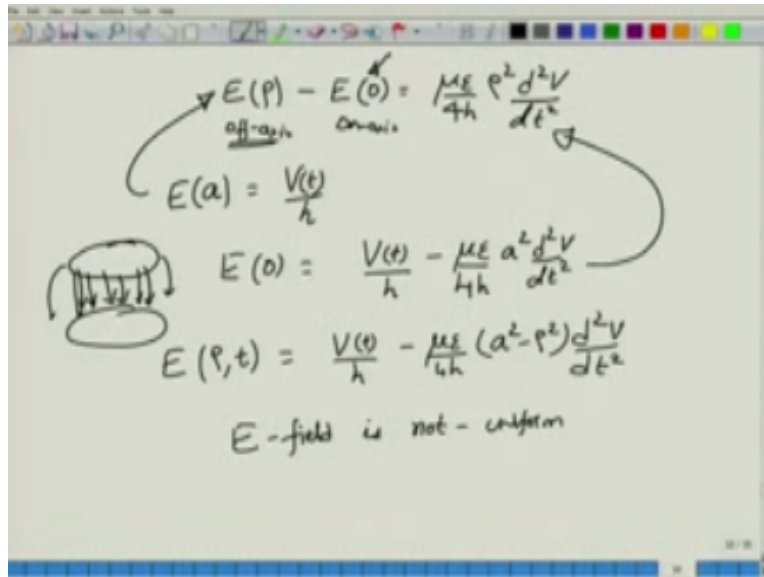 E(ρ) - E(0) = με/4h ρ² d²V/dt²
off-axis on-axis
E(a) = V(t)/h
E(0) = V(t)/h - με/4h a² d²V/dt²
E(ρ,t) = V(t)/h - με/4h (a²-ρ²) d²V/dt²
E-field is not-uniform